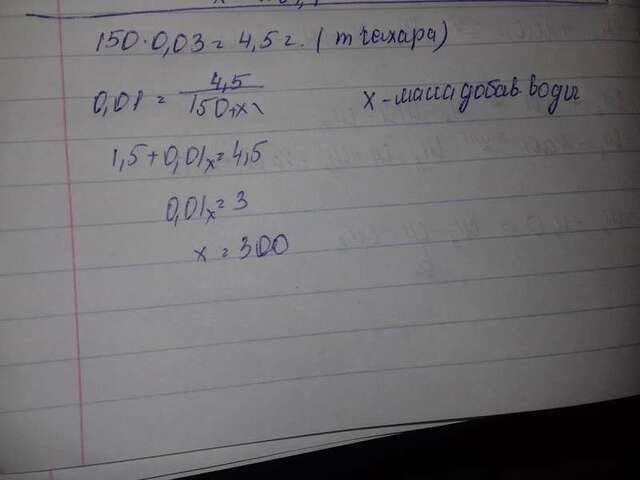 150·0,03 = 4,5 г. (m сахара)
0,01 = 4,5 / 150+x
x - масса добав воды
1,5 + 0,01x = 4,5
0,01x = 3
x = 300